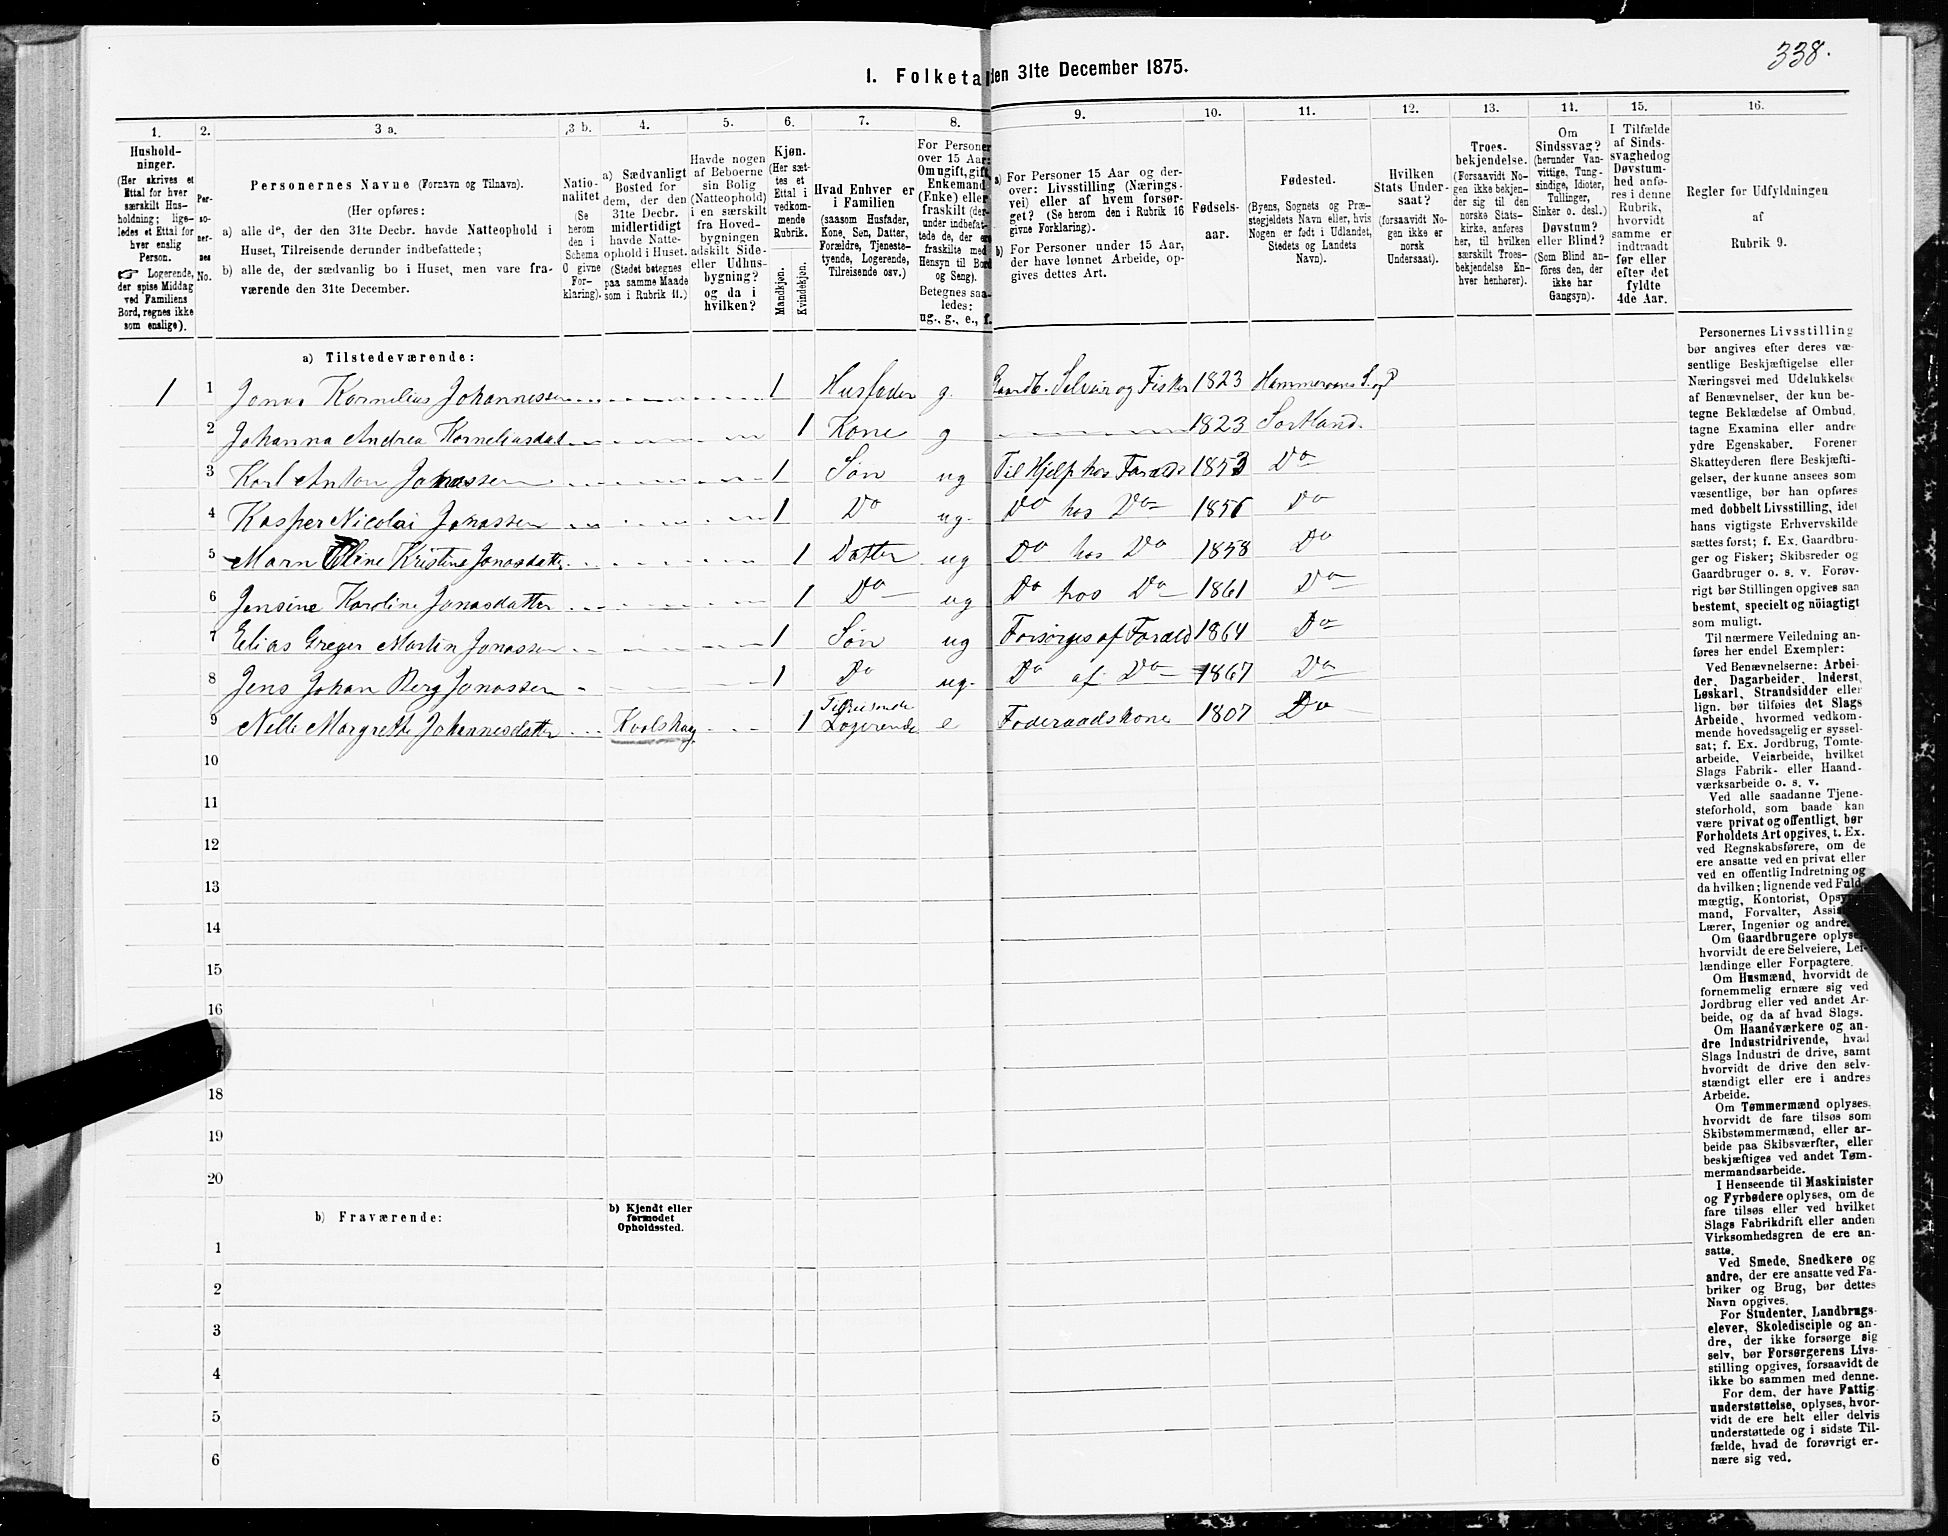 338.
1. Folketa den 31te December 1875.
1. 2. 3 a. 3 b. 4. 5. 6. 7. 8. 9. 10. 11. 12. 13. 14. 15. 16.
Hushold-
ninger.
(Her skrives et
Ettal for hver
særskilt Hus-
holdning; lige-
ledes et Ettal for
hver enslig
Person.
☞ Logerende,
der spise Middag
ved Familiens
Bord, regnes ikke
som enslige).
Per-
so-
ner-
nes
No.
Personernes Navne (Fornavn og Tilnavn).
(Her opføres:
a) alle de, der den 31te Decbr. havde Natteophold i
Huset, Tilreisende derunder indbefattede;
b) alle de, der sædvanlig bo i Huset, men vare fra-
værende den 31te December.
Natio-
nalitet
(Se
herom
den i
Schema
O givne
For-
klaring).
a) Sædvanligt
Bosted for
dem, der den
31te Decbr.
midlertidigt
havde Natte-
ophold i Huset.
(Stedet betegnes
paa samme Maade
som i Rubrik 11.)
Havde nogen
af Beboerne
sin Bolig
(Natteophold)
i en særskilt
fra Hoved-
bygningen
adskilt Side-
eller Udhus-
bygning?
og da i
hvilken?
Kjøn.
(Her sæt-
tes et
Ettal i
vedkom-
mende
Rubrik.
Mandkjøn.
Kvindekjøn.
Hvad Enhver er
i Familien
(saasom Husfader,
Kone, Søn, Datter,
Forældre, Tjeneste-
tyende, Logerende,
Tilreisende osv.)
For Personer
over 15 Aar:
Om ugift, gift,
Enkemand
(Enke) eller
fraskilt (der-
under indbefat-
tede de, der ere
fraskilte med
Hensyn til Bord
og Seng).
Betegnes saa-
ledes:
ug., g., e., f.
a) For Personer 15 Aar og der-
over: Livsstilling (Nærings-
vei) eller af hvem forsør-
get? (Se herom den i Rubrik 16
givne Forklaring).
b) For Personer under 15 Aar,
der have lønnet Arbeide, op-
gives dettes Art.
Fødsels-
aar.
Fødested.
(Byens, Sognets og Præ-
stegjeldets Navn eller, hvis
Nogen er født i Udlandet,
Stedets og Landets
Navn).
Hvilken
Stats Under-
saat?
(forsaavidt No-
gen ikke er
norsk
Undersaat).
Troes-
bekjendelse.
(Forsaavidt No-
gen ikke bekjen-
der sig til den
norske Stats-
kirke, anføres
her, til hvilken
særskilt Troes-
bekjendelse En-
hver henhører).
Om
Sindssvag?
(herunder Van-
vittige, Tung-
sindige, Idioter,
Tullinger,
Sinker o. desl.)
Døvstum?
eller Blind?
(Som Blind an-
føres den, der
ikke har
Gangsyn).
I Tilfælde
af Sinds-
svaghed og
Døvstum-
hed anfø-
res i denne
Rubrik,
hvorvidt
samme er
indtraadt
før eller
efter det
fyldte
4de Aar.
Regler for Udfyldningen
af
Rubrik 9.
a) Tilstedeværende:
1 1 Jonas Kornelius Johannessen 1 Husfader g. Gaardb. Selveier og Fisker 1823 Hammerøens S. og P
2 Johanna Andrea Korneliusdat 1 Kone g 1823 Sortland.
3 Karl Anton Jonassen 1 Søn ug Til Hjelp hos Foræld. 1853 Do
4 Kasper Nicolai Jonassen 1 Do ug. Do hos Do 1856 Do
5 Marn Eline Kristine Jonasdatter 1 Datter ug Do hos Do 1858 Do
6 Jensine Karoline Jonasdatter 1 Do ug Do hos Do 1861 Do
7 Elias Greger Martin Jonassen 1 Søn ug Forsørges af Foræld 1864 Do
8 Jens Johan Berg Jonassen 1 Do ug. Do af Do 1867 Do
9 Nelle Margrethe Johannesdatter Kvalshaug 1 Tilreisende Logerende e Foderaadskone 1807 Do
10
11
12
13
14
15
16
18
19
20
b) Fraværende:
b) Kjendt eller
formodet
Opholdssted.
1
2
3
4
5
6
Personernes Livsstilling
bør angives efter deres væ-
sentlige Beskjæftigelse eller
Næringsvei med Udelukkelse
af Benævnelser, der kun be-
tegne Beklædelse af Ombud,
tagne Examina eller andre
ydre Egenskaber. Forener
Skatteyderen flere Beskjæfti-
gelser, der kunne ansees som
væsentlige, bør han opføres
med dobbelt Livsstilling, idet
hans vigtigste Erhvervskilde
sættes først; f. Ex. Gaardbru-
ger og Fisker; Skibsreder og
Gaardbruger o. s. v. Forøv-
rigt bør Stillingen opgives saa
bestemt, specielt og nöiagtigt
som muligt.
Til nærmere Veiledning an-
føres her endel Exempler:
Ved Benævnelserne: Arbei-
der, Dagarbeider, Inderst,
Løskarl, Strandsidder eller
lign. bør tilføies det Slags
Arbeide, hvormed vedkom-
mende hovedsagelig er syssel-
sat; f. Ex. Jordbrug, Tomte-
arbeide, Veiarbeide, hvilket
Slags Fabrik- eller Haand-
værksarbeide o. s. v.
Ved alle saadanne Tjene-
steforhold, som baade kan
være privat og offentligt, bør
Forholdets Art opgives, t. Ex.
ved Regnskabsførere, om de
ere ansatte ved en privat eller
ved en offentlig Indretning og
da hvilken; lignende ved Fuld-
mægtig, Kontorist, Opsyns-
mand, Forvalter, Assi
Lærer, Ingeniør og andre.
Om Gaardbrugere oplyses,
hvorvidt de ere Selveiere, Lei-
lændinge eller Forpagtere.
Om Husmænd, hvorvidt de
fornemmelig ernære sig ved
Jordbrug eller ved andet Ar-
beide, og da af hvad Slags.
Om Haandværkere og an-
dre Industridrivende, hvad
Slags Industri de drive, samt
hvorvidt de drive den selv-
stændigt eller ere i andres
Arbeide.
Om Tømmermænd oplyses,
hvorvidt de fare tilsøs som
Skibstømmermænd, eller ar-
beide paa Skibsværfter, eller
beskjæftiges ved andet Tøm-
mermandsarbeide.
I Henseende til Maskinister
og Fyrbødere oplyses, om de
fare tilsøs eller ved hvilket
Slags Fabrikdrift eller anden
Virksomhedsgren de ere an-
satte.
Ved Smede, Snedkere og
andre, der ere ansatte ved Fa-
briker og Brug, bør dettes
Navn opgives.
For Studenter, Landbrugs-
elever, Skoledisciple og an-
dre, der ikke forsørge sig
selv, bør Forsørgerens Livs-
stilling opgives, forsaavidt de
ikke bo sammen med denne.
For dem, der have Fattig-
understøttelse, oplyses, hvor-
vidt de ere helt eller delvis
understøttede og i sidste Til-
fælde, hvad de forøvrigt er-
nære sig ved.